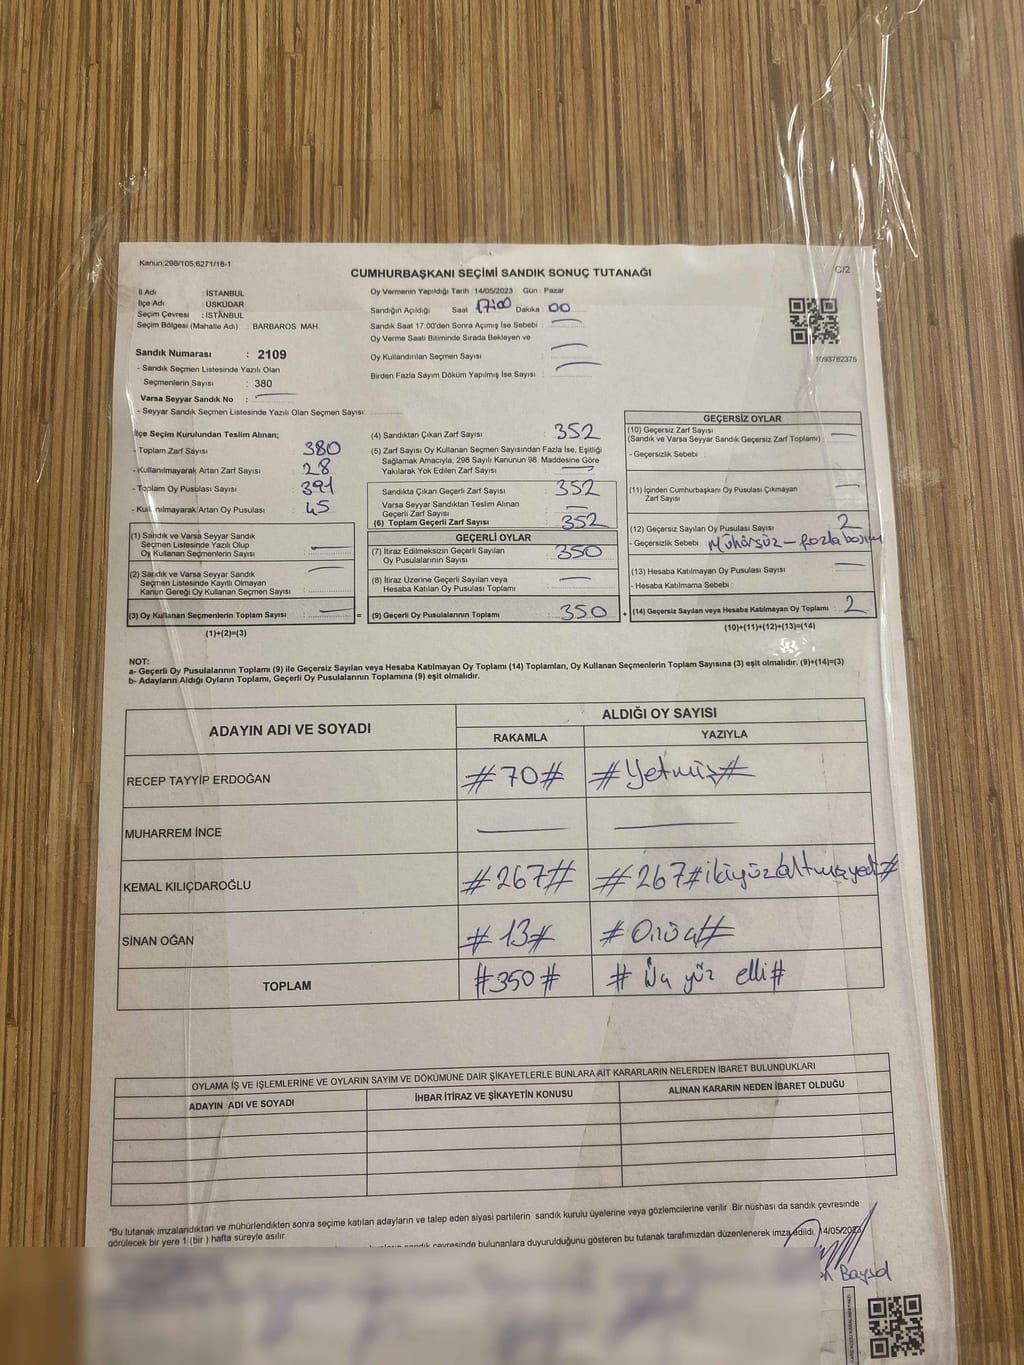 Kanun:298/105;6271/18-1
CUMHURBAŞKANI SEÇİMİ SANDIK SONUÇ TUTANAĞI
C/2
İl Adı : İSTANBUL
İlçe Adı : ÜSKÜDAR
Seçim Çevresi : İSTANBUL
Seçim Bölgesi (Mahalle Adı) : BARBAROS MAH.
Oy Vermenin Yapıldığı Tarih :14/05/2023 Gün : Pazar
Sandığın Açıldığı Saat 17:00 Dakika 00
Sandık Saat 17:00'den Sonra Açımış İse Sebebi :
Oy Verme Saati Bitiminde Sırada Bekleyen ve
Oy Kullandırılan Seçmen Sayısı :
Birden Fazla Sayım Döküm Yapılmış İse Sayısı :
1093762375
Sandık Numarası : 2109
- Sandık Seçmen Listesinde Yazılı Olan
Seçmenlerin Sayısı : 380
Varsa Seyyar Sandık No :
- Seyyar Sandık Seçmen Listesinde Yazılı Olan Seçmen Sayısı:
İlçe Seçim Kurulundan Teslim Alınan;
- Toplam Zarf Sayısı : 380
- Kullanılmayarak Artan Zarf Sayısı : 28
- Toplam Oy Pusulası Sayısı : 391
- Kullanılmayarak Artan Oy Pusulası : 45
(1) Sandık ve Varsa Seyyar Sandık
Seçmen Listesinde Yazılı Olup
Oy Kullanan Seçmenlerin Sayısı :
(2) Sandık ve Varsa Seyyar Sandık
Seçmen Listesinde Kayıtlı Olmayan
Kanun Gereği Oy Kullanan Seçmen Sayısı :
(3) Oy Kullanan Seçmenlerin Toplam Sayısı :
(1)+(2)=(3)
(4) Sandıktan Çıkan Zarf Sayısı : 352
(5) Zarf Sayısı Oy Kullanan Seçmen Sayısından Fazla İse, Eşitliği
Sağlamak Amacıyla, 298 Sayılı Kanunun 98. Maddesine Göre
Yakılarak Yok Edilen Zarf Sayısı :
Sandıkta Çıkan Geçerli Zarf Sayısı : 352
Varsa Seyyar Sandıktan Teslim Alınan
Geçerli Zarf Sayısı :
(6) Toplam Geçerli Zarf Sayısı : 352
GEÇERLİ OYLAR
(7) İtiraz Edilmeksizin Geçerli Sayılan
Oy Pusulalarının Sayısı : 350
(8) İtiraz Üzerine Geçerli Sayılan veya
Hesaba Katılan Oy Pusulaları Toplamı :
= (9) Geçerli Oy Pusulalarının Toplamı : 350 +
GEÇERSİZ OYLAR
(10) Geçersiz Zarf Sayısı
(Sandık ve Varsa Seyyar Sandık Geçersiz Zarf Toplamı) :
- Geçersizlik Sebebi :
(11) İçinden Cumhurbaşkanı Oy Pusulası Çıkmayan
Zarf Sayısı :
(12) Geçersiz Sayılan Oy Pusulası Sayısı : 2
- Geçersizlik Sebebi : Mühürsüz - fazla basım
(13) Hesaba Katılmayan Oy Pusulası Sayısı :
- Hesaba Katılmama Sebebi :
(14) Geçersiz Sayılan veya Hesaba Katılmayan Oy Toplamı : 2
(10)+(11)+(12)+(13)=(14)
NOT:
a- Geçerli Oy Pusulalarının Toplamı (9) ile Geçersiz Sayılan veya Hesaba Katılmayan Oy Toplamı (14) Toplamları, Oy Kullanan Seçmenlerin Toplam Sayısına (3) eşit olmalıdır. (9)+(14)=(3)
b- Adayların Aldığı Oyların Toplamı, Geçerli Oy Pusulalarının Toplamına (9) eşit olmalıdır.
ADAYIN ADI VE SOYADI
ALDIĞI OY SAYISI
RAKAMLA YAZIYLA
RECEP TAYYİP ERDOĞAN #70# #Yetmiş#
MUHARREM İNCE
KEMAL KILIÇDAROĞLU #267# #267#ikiyüzaltmışyedi#
SİNAN OĞAN #13# #Onüç#
TOPLAM #350# #Üç yüz elli#
OYLAMA İŞ VE İŞLEMLERİNE VE OYLARIN SAYIM VE DÖKÜMÜNE DAİR ŞİKAYETLERLE BUNLARA AİT KARARLARIN NELERDEN İBARET BULUNDUKLARI
ADAYIN ADI VE SOYADI İHBAR İTİRAZ VE ŞİKAYETİN KONUSU ALINAN KARARIN NEDEN İBARET OLDUĞU
*Bu tutanak imzalandıktan ve mühürlendikten sonra seçime katılan adayların ve talep eden siyasi partilerin sandık kurulu üyelerine veya gözlemcilerine verilir. Bir nüshası da sandık çevresinde
görülecek bir yere 1 (bir ) hafta süreyle asılır.
sandık çevresinde bulunanlara duyurulduğunu gösteren bu tutanak tarafımızdan düzenlenerek imza edildi. 14/05/2023
Baysal